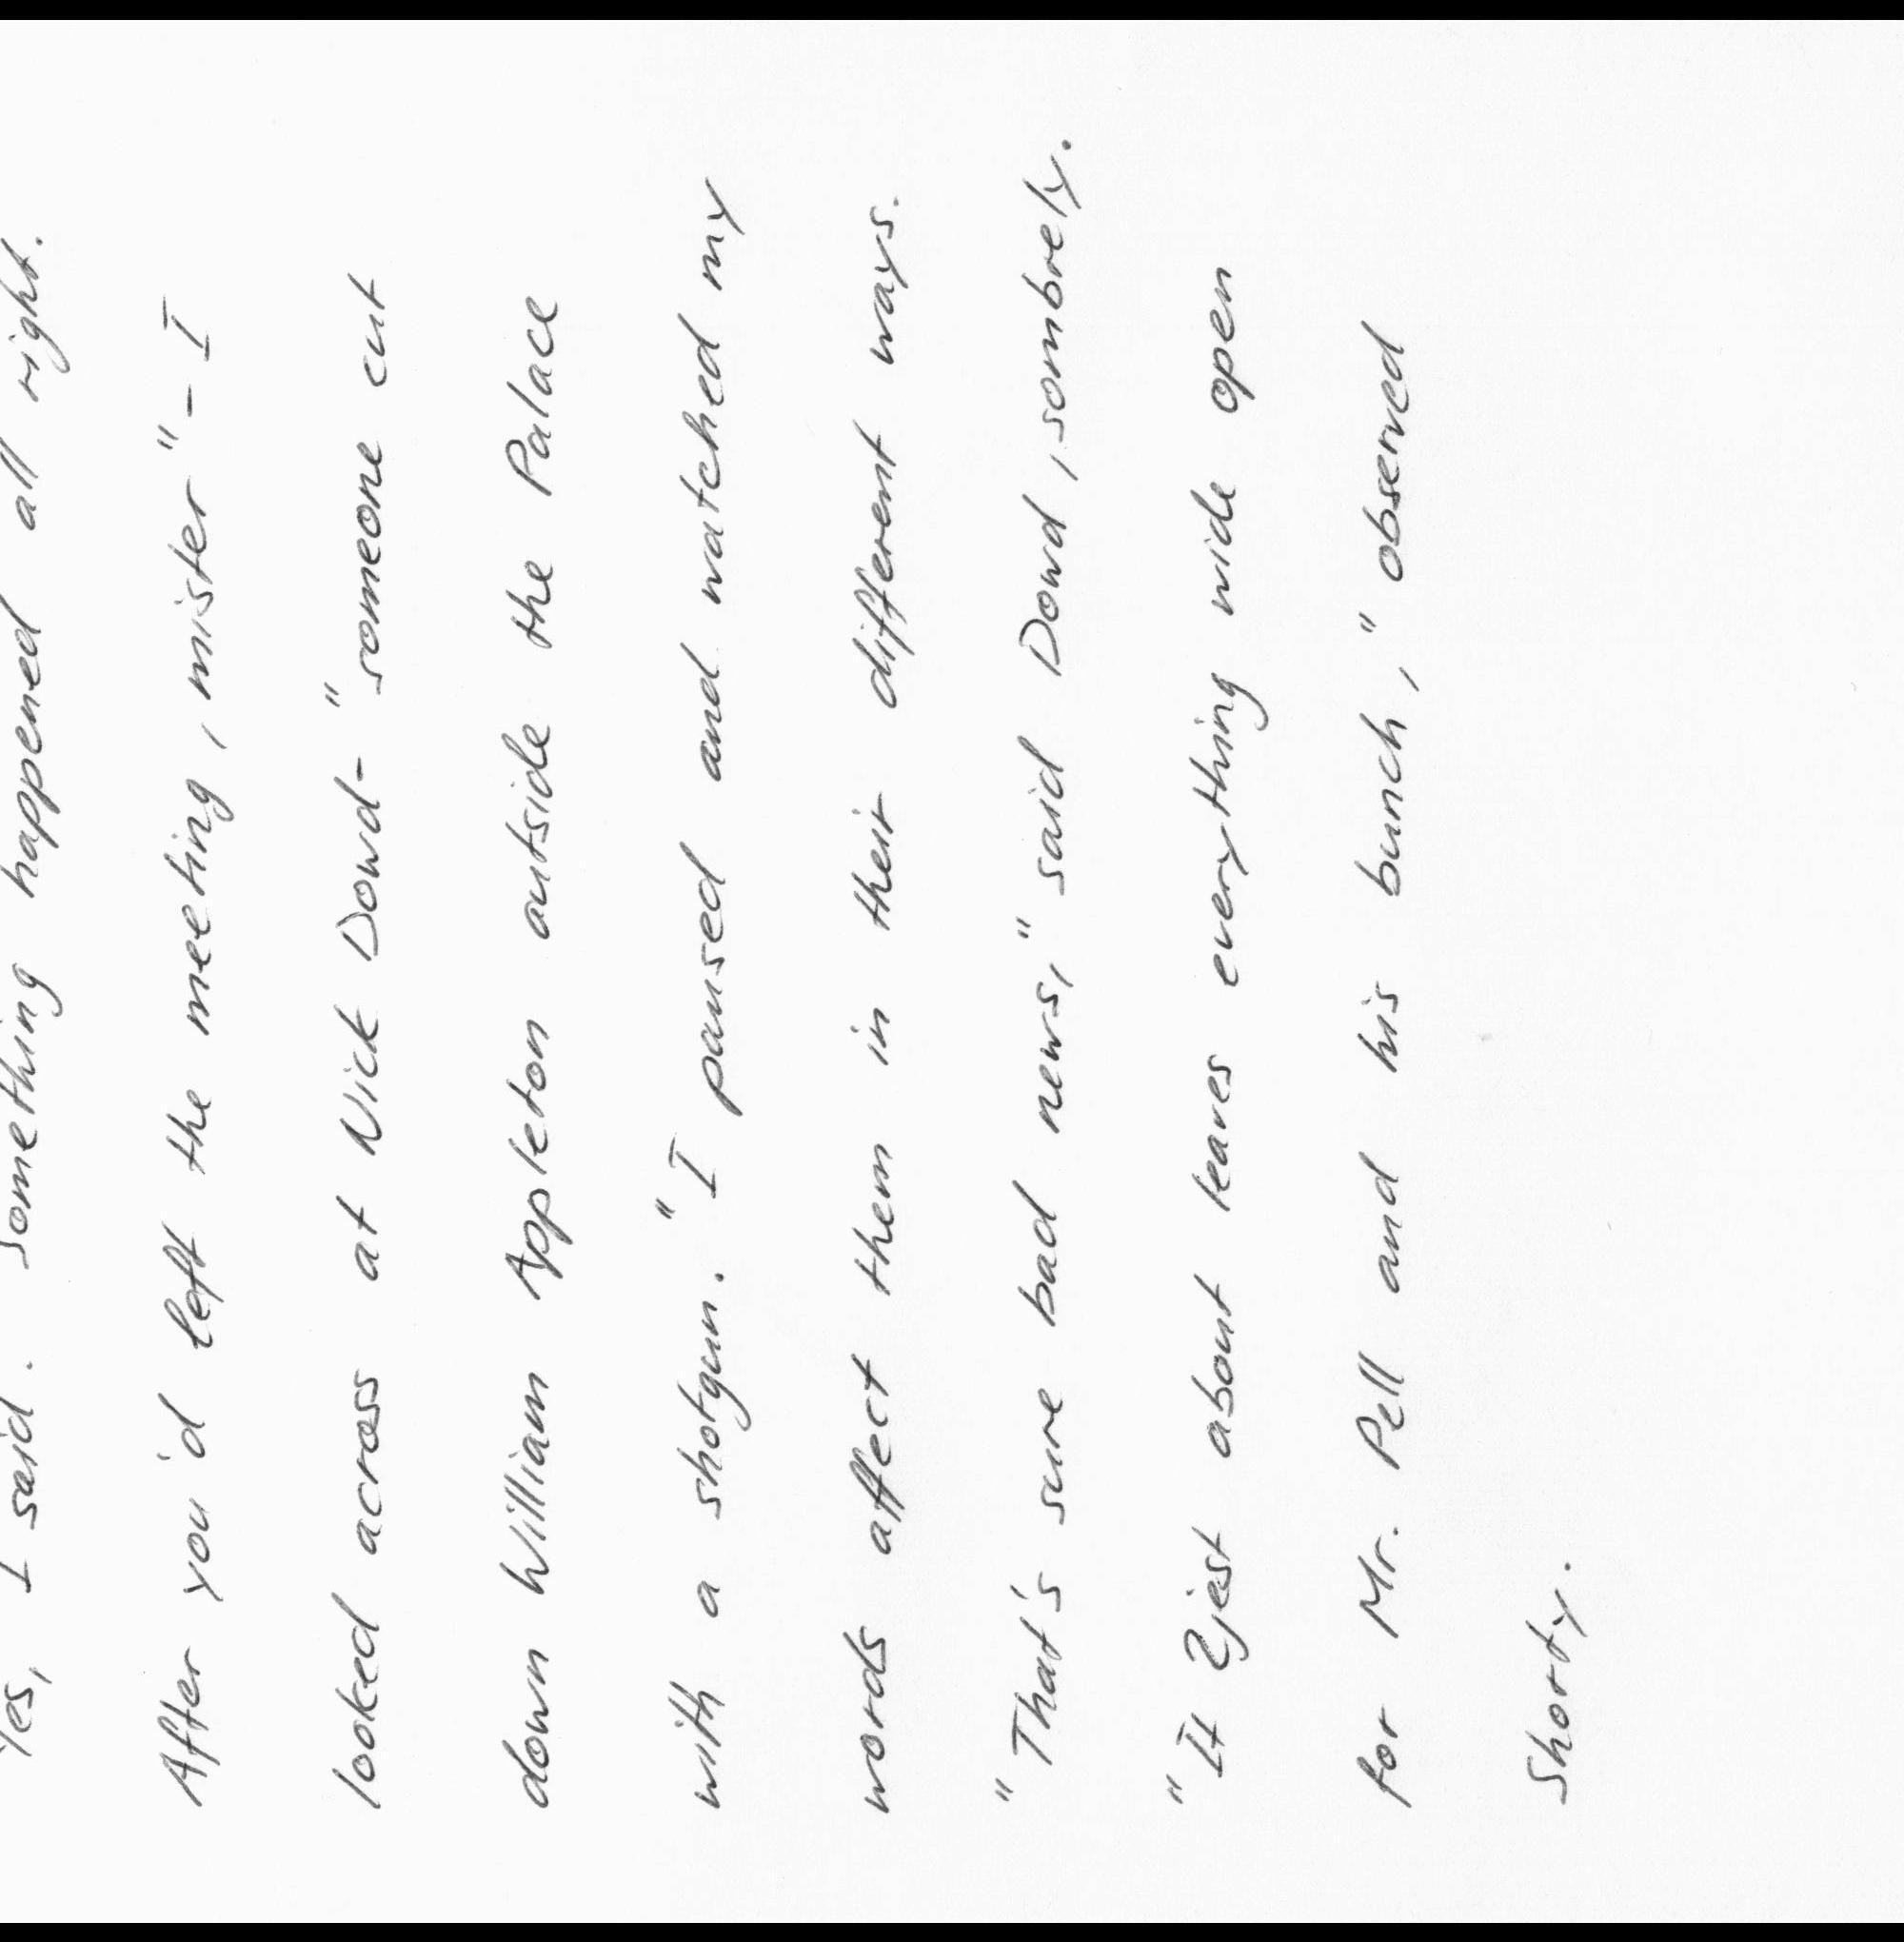 Yes, I said. Something happened all right.
After you'd left the meeting, mister" - I
looked across at Nick Dowd - "someone cut
down William Appleton outside the Palace
with a shotgun." I paused and watched my
words affect them in their different ways.
"That's sure bad news," said Dowd, sombrely.
"It jest about leaves everything wide open
for Mr. Pell and his bunch," observed
Shorty.